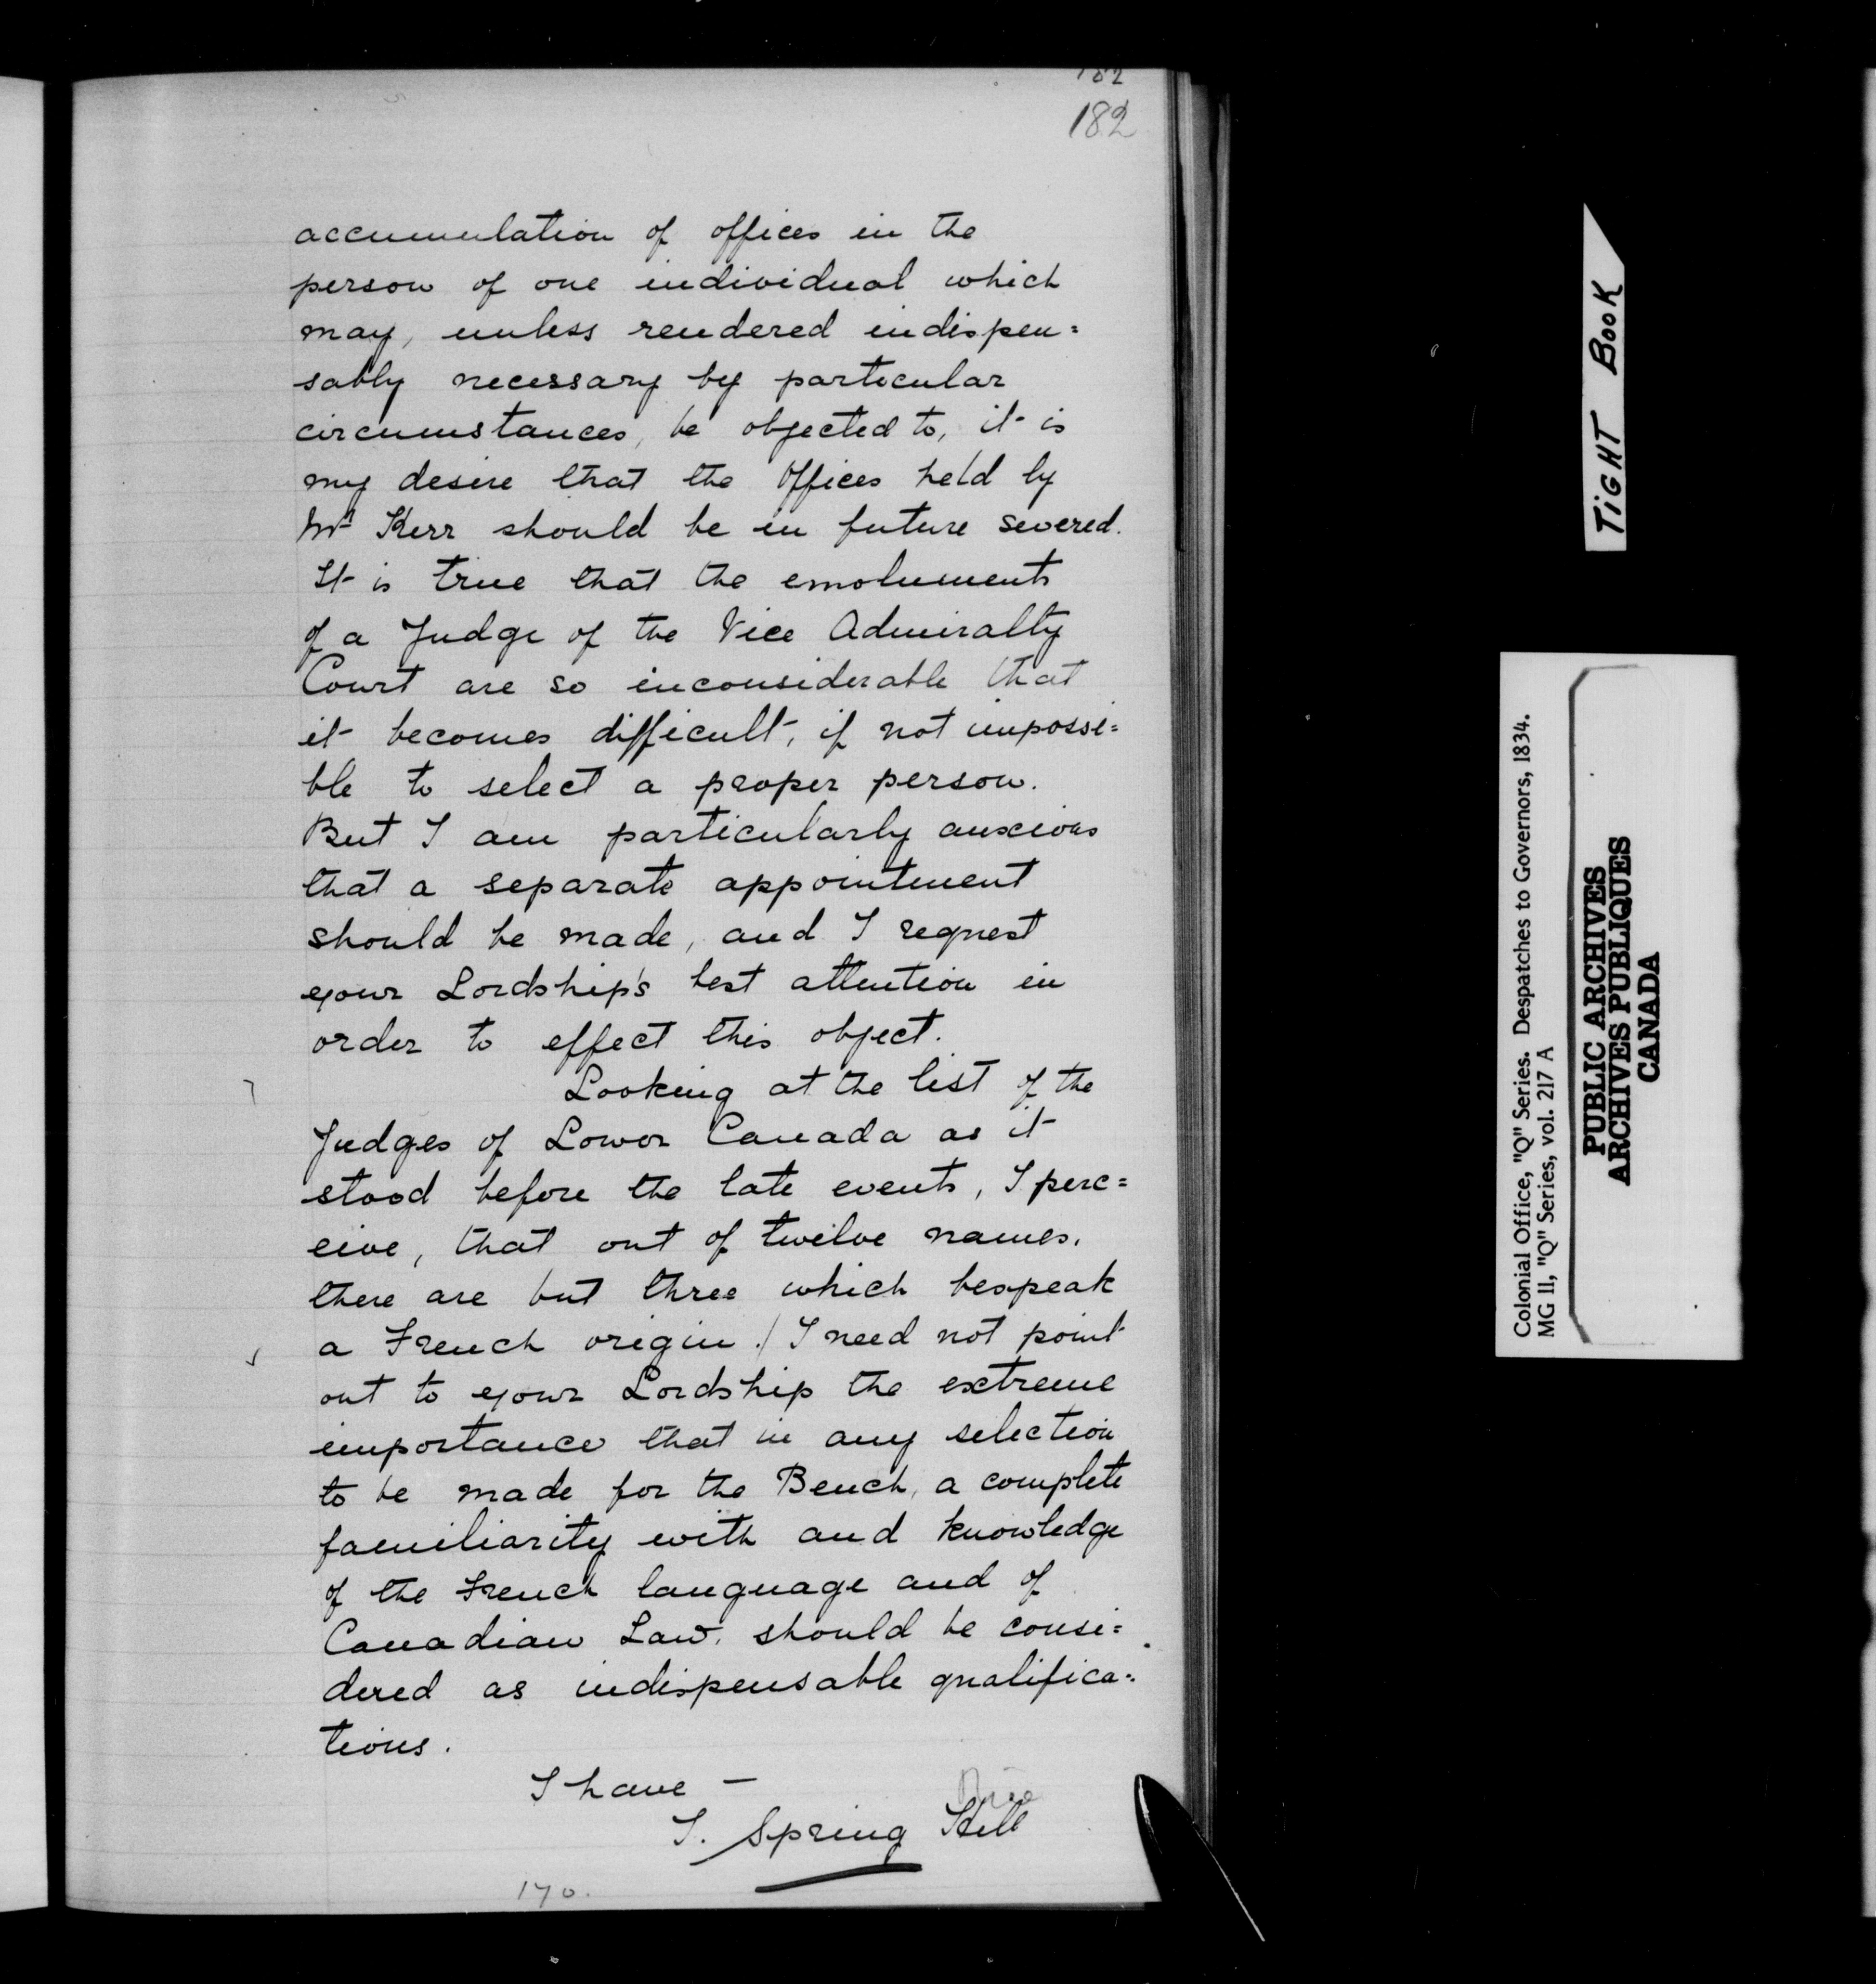 182
182
accumulation of offices in the
person of one individual which
may, unless rendered indispen=
sably necessary by particular
circumstances, be objected to, it is
my desire that the Offices held by
Mr Kerr should be in future severed.
It is true that the emoluments
of a Judge of the Vice Admiralty
Court are so inconsiderable that
it becomes difficult, if not impossi=
ble to select a proper person.
But I am particularly anxious
that a separate appointment
should be made, and I request
your Lordship's best attention in
order to effect this object.
Looking at the list of the
Judges of Lower Canada as it
stood before the late events, I perc=
eive, that out of twelve names,
there are but three which bespeak
a French origin. / I need not point
out to your Lordship the extreme
importance that in any selection
to be made for the Bench, a complete
familiarity with and knowledge
of the French language and of
Canadian Law, should be consi=
dered as indispensable qualifica=
tions.
I have —
Rice
T. Spring Hill
170.
TIGHT BOOK
Colonial Office, "Q" Series. Despatches to Governors, 1834.
MG 11, "Q" Series, vol. 217 A
PUBLIC ARCHIVES
ARCHIVES PUBLIQUES
CANADA